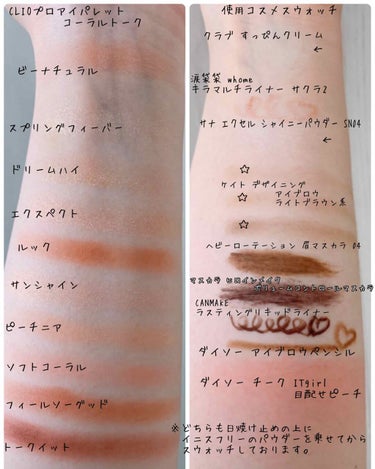 CLIOプロアイパレット
コーラルトーク
ビーナチュラル
スプリングフィーバー
ドリームハイ
エクスペクト
ルック
サンシャイン
ピーチニア
ソフトコーラル
フィールソーグッド
トークイット
使用コスメスウォッチ
クラブ すっぴんクリーム
←
涙袋 whome
キラマルチライナー サクラ2
サナ エクセル シャイニーパウダー SN04
←
☆
ケイト デザイニング
☆ アイブロウ
ライトブラウン系
☆
ヘビーローテーション 眉マスカラ 04
マスカラ ヒロインメイク
ボリュームコントロールマスカラ
CANMAKE
ラスティングリキッドライナー
ダイソー アイブロウペンシル
ダイソー チーク ITgirl
目配せピーチ
※どちらも日焼け止めの上に
イニスフリーのパウダーを乗せてから
スウォッチしております。